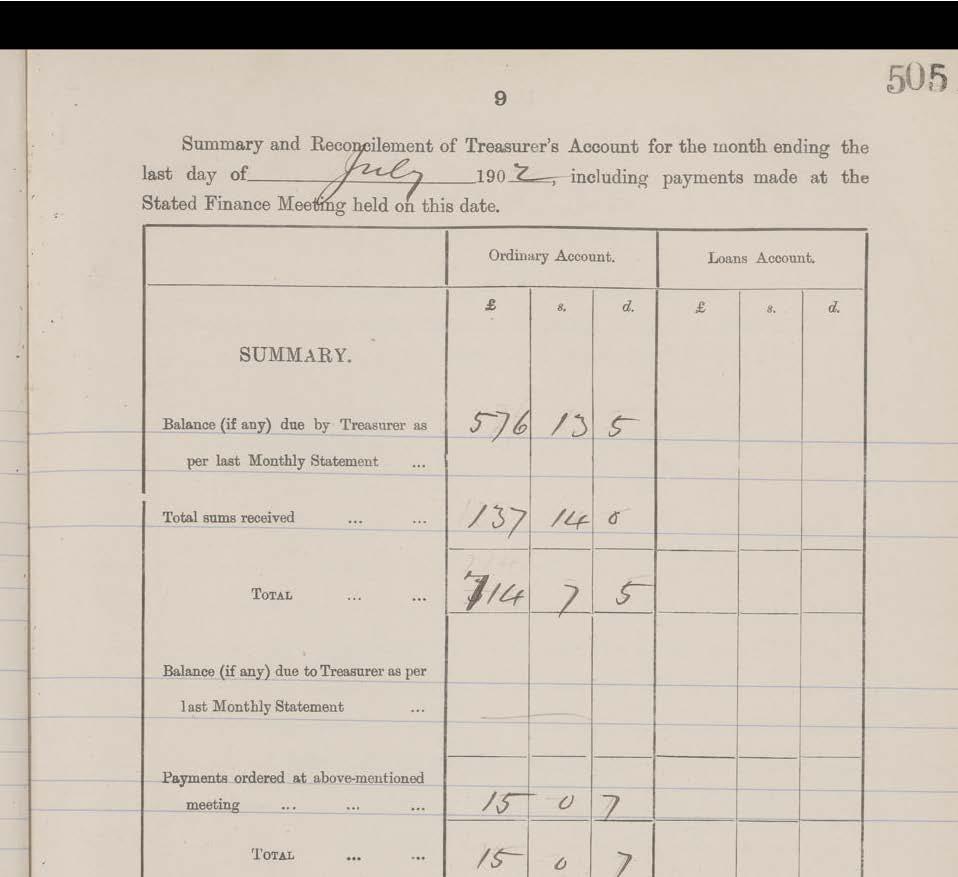 505
9
Summary and Reconcilement of Treasurer's Account for the month ending the
last day of July 1902, including payments made at the
Stated Finance Meeting held on this date.
Ordinary Account. Loans Account.
£ s. d. £ s. d.
SUMMARY.
Balance (if any) due by Treasurer as 576 13 5
per last Monthly Statement ...
Total sums received ... ... 137 14 0
TOTAL ... ... 714 7 5
Balance (if any) due to Treasurer as per
last Monthly Statement ...
Payments ordered at above-mentioned
meeting ... ... ... 15 0 7
TOTAL ... ... 15 0 7